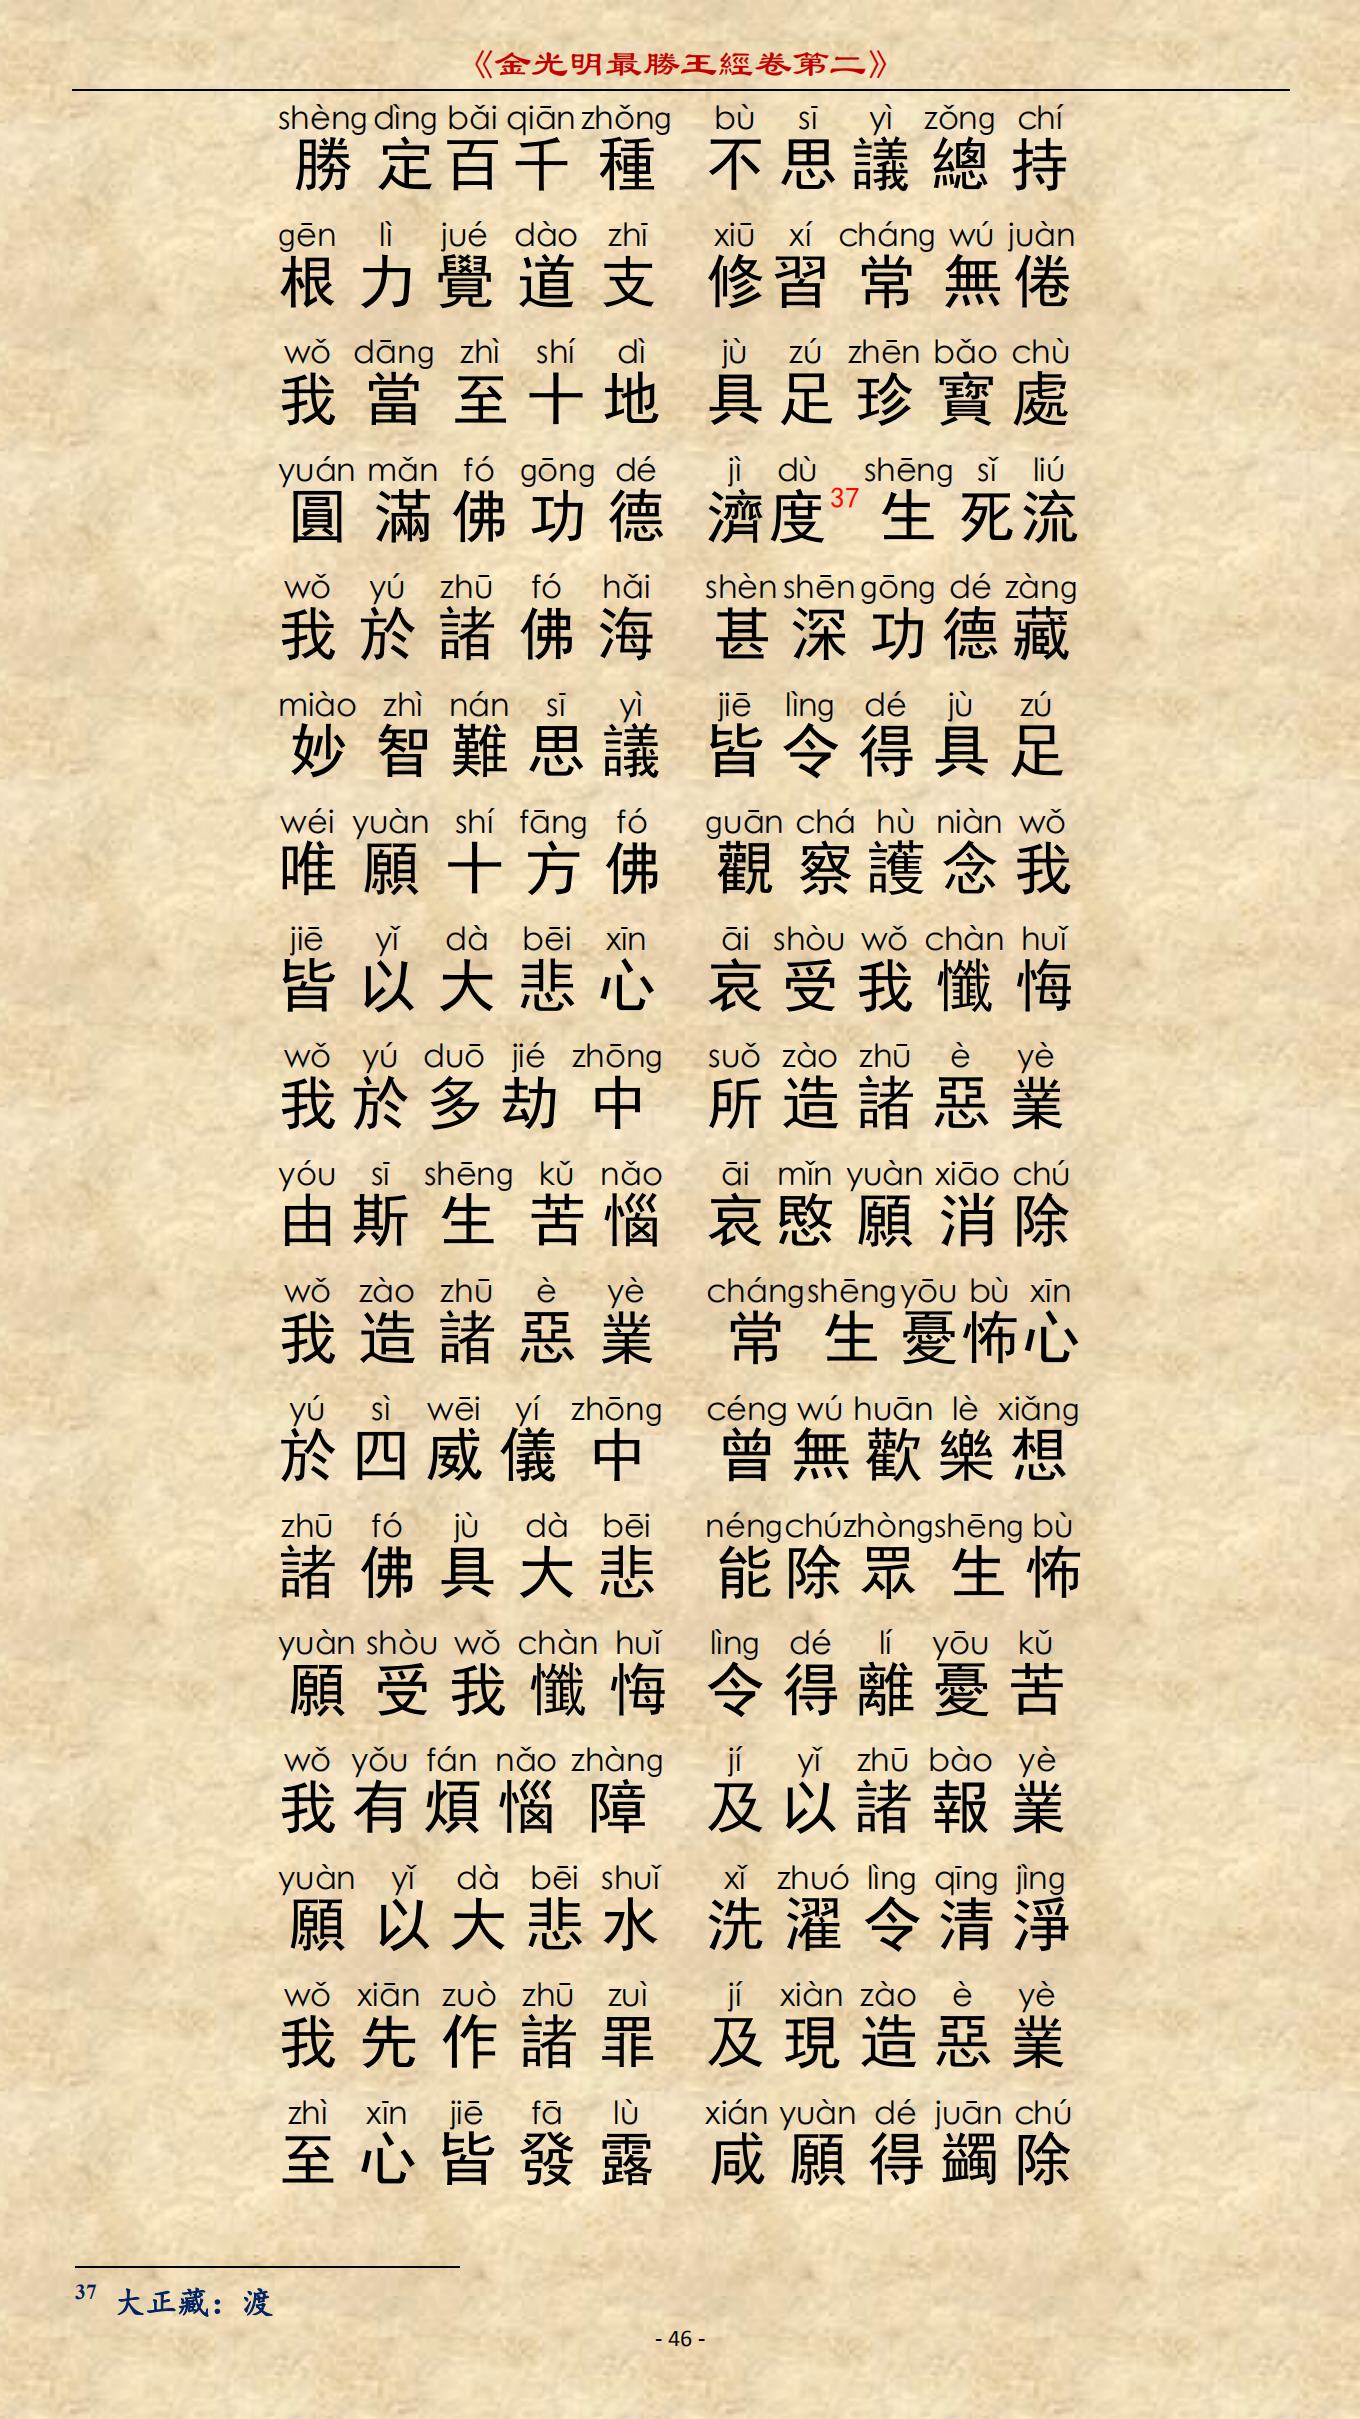 《金光明最勝王經卷第二》
shèng dìng bǎi qiān zhǒng bù sī yì zǒng chí
勝定百千種 不思議總持
gēn lì jué dào zhī xiū xí cháng wú juàn
根力覺道支 修習常無倦
wǒ dāng zhì shí dì jù zú zhēn bǎo chù
我當至十地 具足珍寶處
yuán mǎn fó gōng dé jì dù shēng sǐ liú
圓滿佛功德 濟度37生死流
wǒ yú zhū fó hǎi shèn shēn gōng dé zàng
我於諸佛海 甚深功德藏
miào zhì nán sī yì jiē lìng dé jù zú
妙智難思議 皆令得具足
wéi yuàn shí fāng fó guān chá hù niàn wǒ
唯願十方佛 觀察護念我
jiē yǐ dà bēi xīn āi shòu wǒ chàn huǐ
皆以大悲心 哀受我懺悔
wǒ yú duō jié zhōng suǒ zào zhū è yè
我於多劫中 所造諸惡業
yóu sī shēng kǔ nǎo āi mǐn yuàn xiāo chú
由斯生苦惱 哀愍願消除
wǒ zào zhū è yè cháng shēng yōu bù xīn
我造諸惡業 常生憂怖心
yú sì wēi yí zhōng céng wú huān lè xiǎng
於四威儀中 曾無歡樂想
zhū fó jù dà bēi néng chú zhòng shēng bù
諸佛具大悲 能除眾生怖
yuàn shòu wǒ chàn huǐ lìng dé lí yōu kǔ
願受我懺悔 令得離憂苦
wǒ yǒu fán nǎo zhàng jí yǐ zhū bào yè
我有煩惱障 及以諸報業
yuàn yǐ dà bēi shuǐ xǐ zhuó lìng qīng jìng
願以大悲水 洗濯令清淨
wǒ xiān zuò zhū zuì jí xiàn zào è yè
我先作諸罪 及現造惡業
zhì xīn jiē fā lù xián yuàn dé juān chú
至心皆發露 咸願得蠲除
37 大正藏：渡
- 46 -